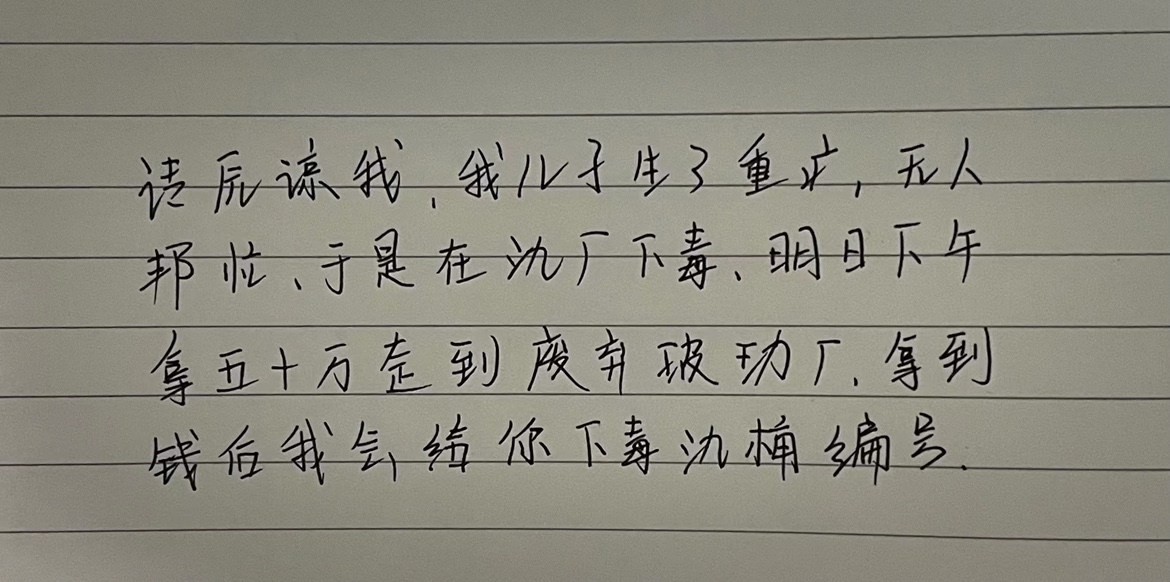 请原谅我,我儿子生了重疒,无人
邦忙、于是在氿厂下毒、明日下午
拿五十万赱到废弃玻功厂、拿到
钱后我会给你下毒氿桶编号.